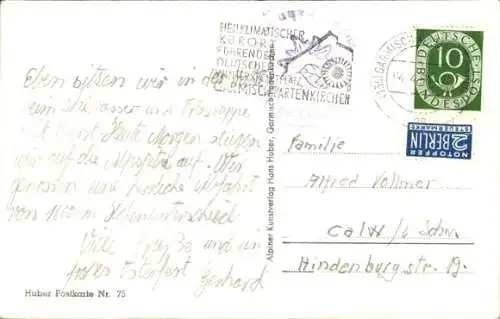 HEILKLIMATISCHER
KURORT
FÜHRENDER
DEUTSCHER
WINTERSPORTPLATZ
GARMISCH-PARTENKIRCHEN
GARMISCH
DEUTSCHE
BUNDESPOST
10
NOTOPFER
2 BERLIN
STEUERMARKE
Eben sitzen wir in der
ein
mit Heute Morgen stiegen
wir auf die Alpspitze auf. Wir
genossen eine herrliche Abfahrt
von 1100 m Höhenunterschied
Viele Grüße und ein
frohes Osterfest Gerhard
Alpiner Kunstverlag Hans Huber, Garmisch-Partenkirchen
Familie
Alfred Vollmer
Calw / Schw.
Hindenburgstr. 19.
Huber Postkarte Nr. 75